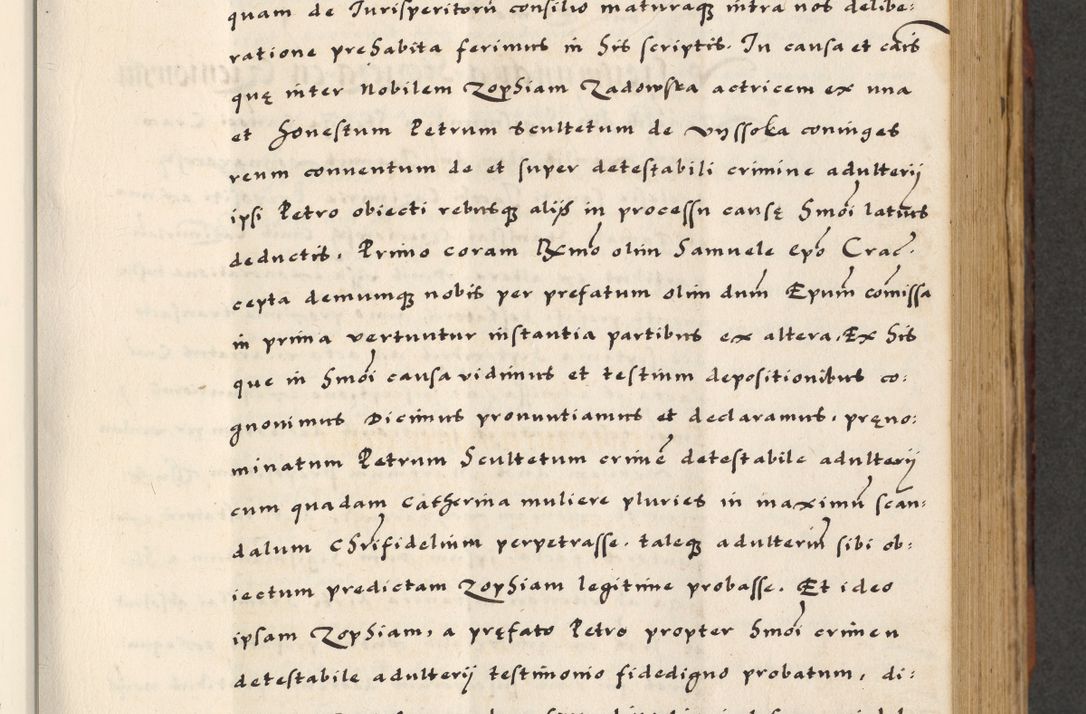 quam de Jurisperitorũ consilio maturaq̃ intra nos delibe:
ratione prehabita ferimus in his scriptis. In causa et cãis
quę inter Nobilem Zophiam Zadowska actricem ex una
et honestum Petrum Scultetum de Vyssoka coniuges
reum conventum de et super detestabili crimine adulterij
ipsi Petro obiecti rebusq̃ alijs in processu causę hm̃oi latius
deductis. Primo coram Rx̃mo olim Samuele ep̃o Crac̃.
cepta demumq̃ nobis per prefatum olim dnũm Epũm com̃issa
in prima vertuntur instantia partibus ex altera. Ex his
que in hm̃oi causa vidimus et testium depositionibus co:
gnovimus Dicimus pronuntiamus et declaramus. pręno:
minatum Petrum Scultetum crimẽ detestabile adulterij
cum quadam Catherina muliere pluries in maximũ scan:
dalum Chr̃ifidelium perpetrasse. taleq̃ adulteriũ sibi ob:
iectum predictam Zophiam legitime probasse. Et ideo
ipsam Zophiam, a pręfato Petro propter hm̃oi crimen
detestabile adulterij testimonio fidedigno probatum, di: